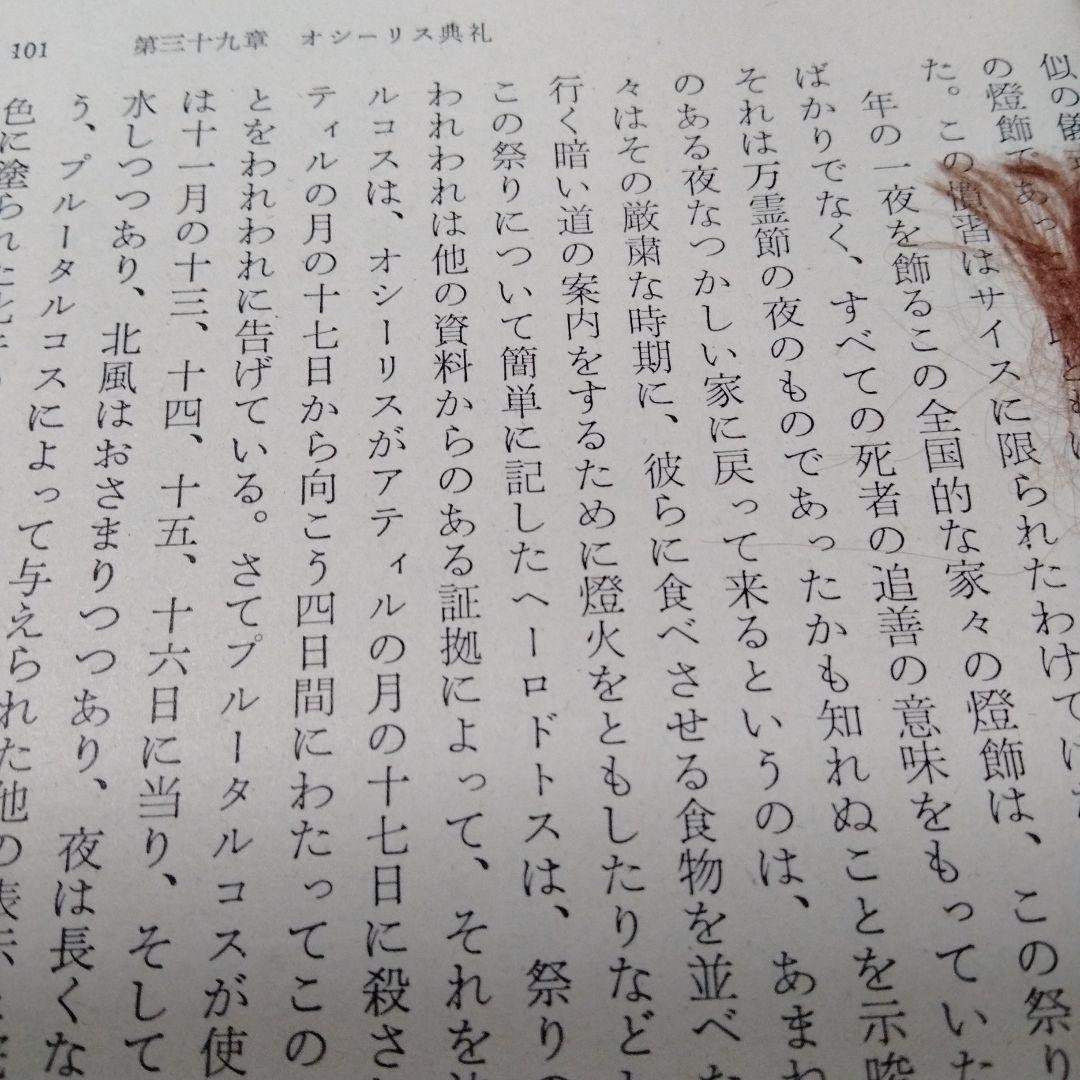 101
第三十九章 オシーリス典礼
似の儀
の燈飾であっ
た。この慣習はサイスに限られたわけでは
年の一夜を飾るこの全国的な家々の燈飾は、この祭り
ばかりでなく、すべての死者の追善の意味をもっていた
それは万霊節の夜のものであったかも知れぬことを示唆
のある夜なつかしい家に戻って来るというのは、あまね
々はその厳粛な時期に、彼らに食べさせる食物を並べた
行く暗い道の案内をするために燈火をともしたりなど
この祭りについて簡単に記したヘーロドトスは、祭りの
われわれは他の資料からのある証拠によって、それを
ルコスは、オシーリスがアティルの月の十七日に殺され
ティルの月の十七日から向こう四日間にわたってこの
とをわれわれに告げている。さてプルータルコスが使
は十一月の十三、十四、十五、十六日に当り、そして
水しつつあり、北風はおさまりつつあり、夜は長くな
う、プルータルコスによって与えられた他の表示
色に塗られた